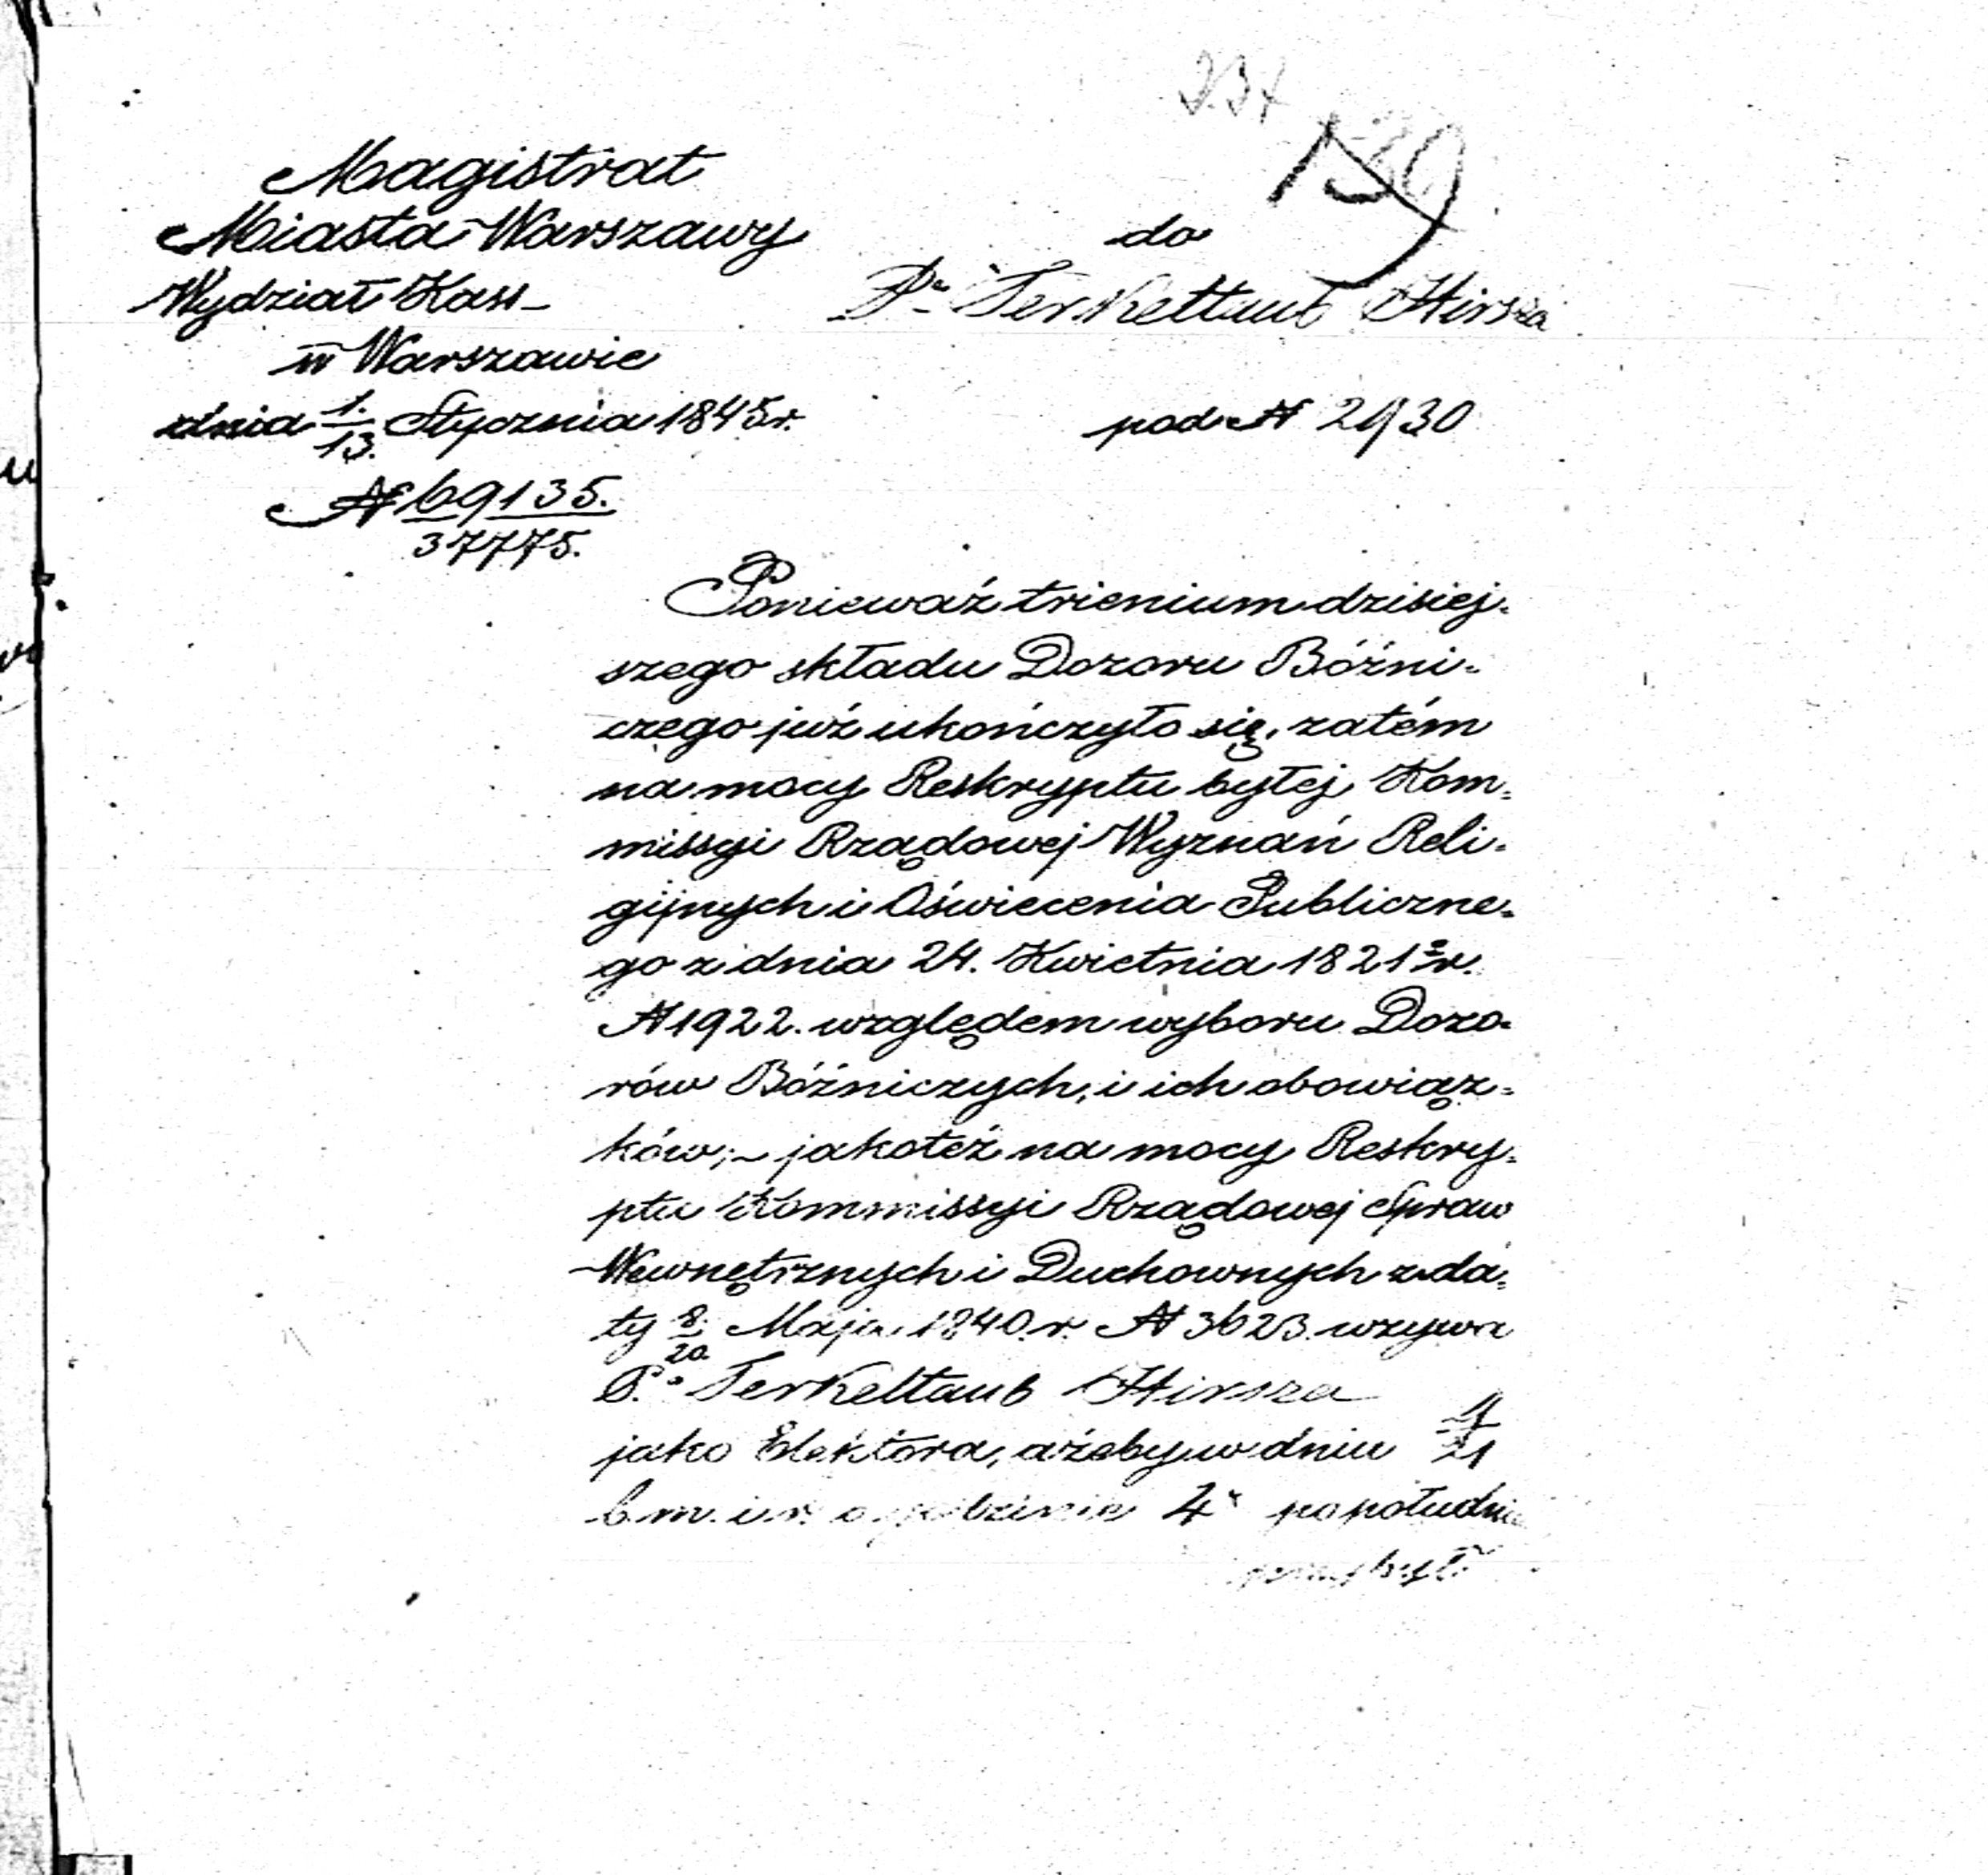 234
139
Magistrat
Miasta Warszawy
Wydział Kass
w Warszawie
dnia 1./13. Stycznia 1845 r.
N 69135./37775.
do
Pa Ferkeltaub Hirsza
pod N 2430
Ponieważ trienium dzisiej-
szego składu Dozoru Bóżni-
czego już ukończyło się, zatém
na mocy Reskryptu byłej Kom-
missyi Rządowej Wyznań Reli-
gijnych i Oświecenia Publiczne-
go z dnia 24. Kwietnia 1821 r.
N 1922. względem wyboru Dozo-
rów Bóżniczych, i ich obowiąz-
ków; jakoteż na mocy Reskry-
ptu Kommissyi Rządowej Spraw
Wewnętrznych i Duchownych z da-
ty 8./20. Maja 1840. r. N 3623. wzywa
P. Ferkeltaub Hirsza
jako Elektora, ażeby w dniu /21
b. m. i r. o godzinie 4 po południu
przybył